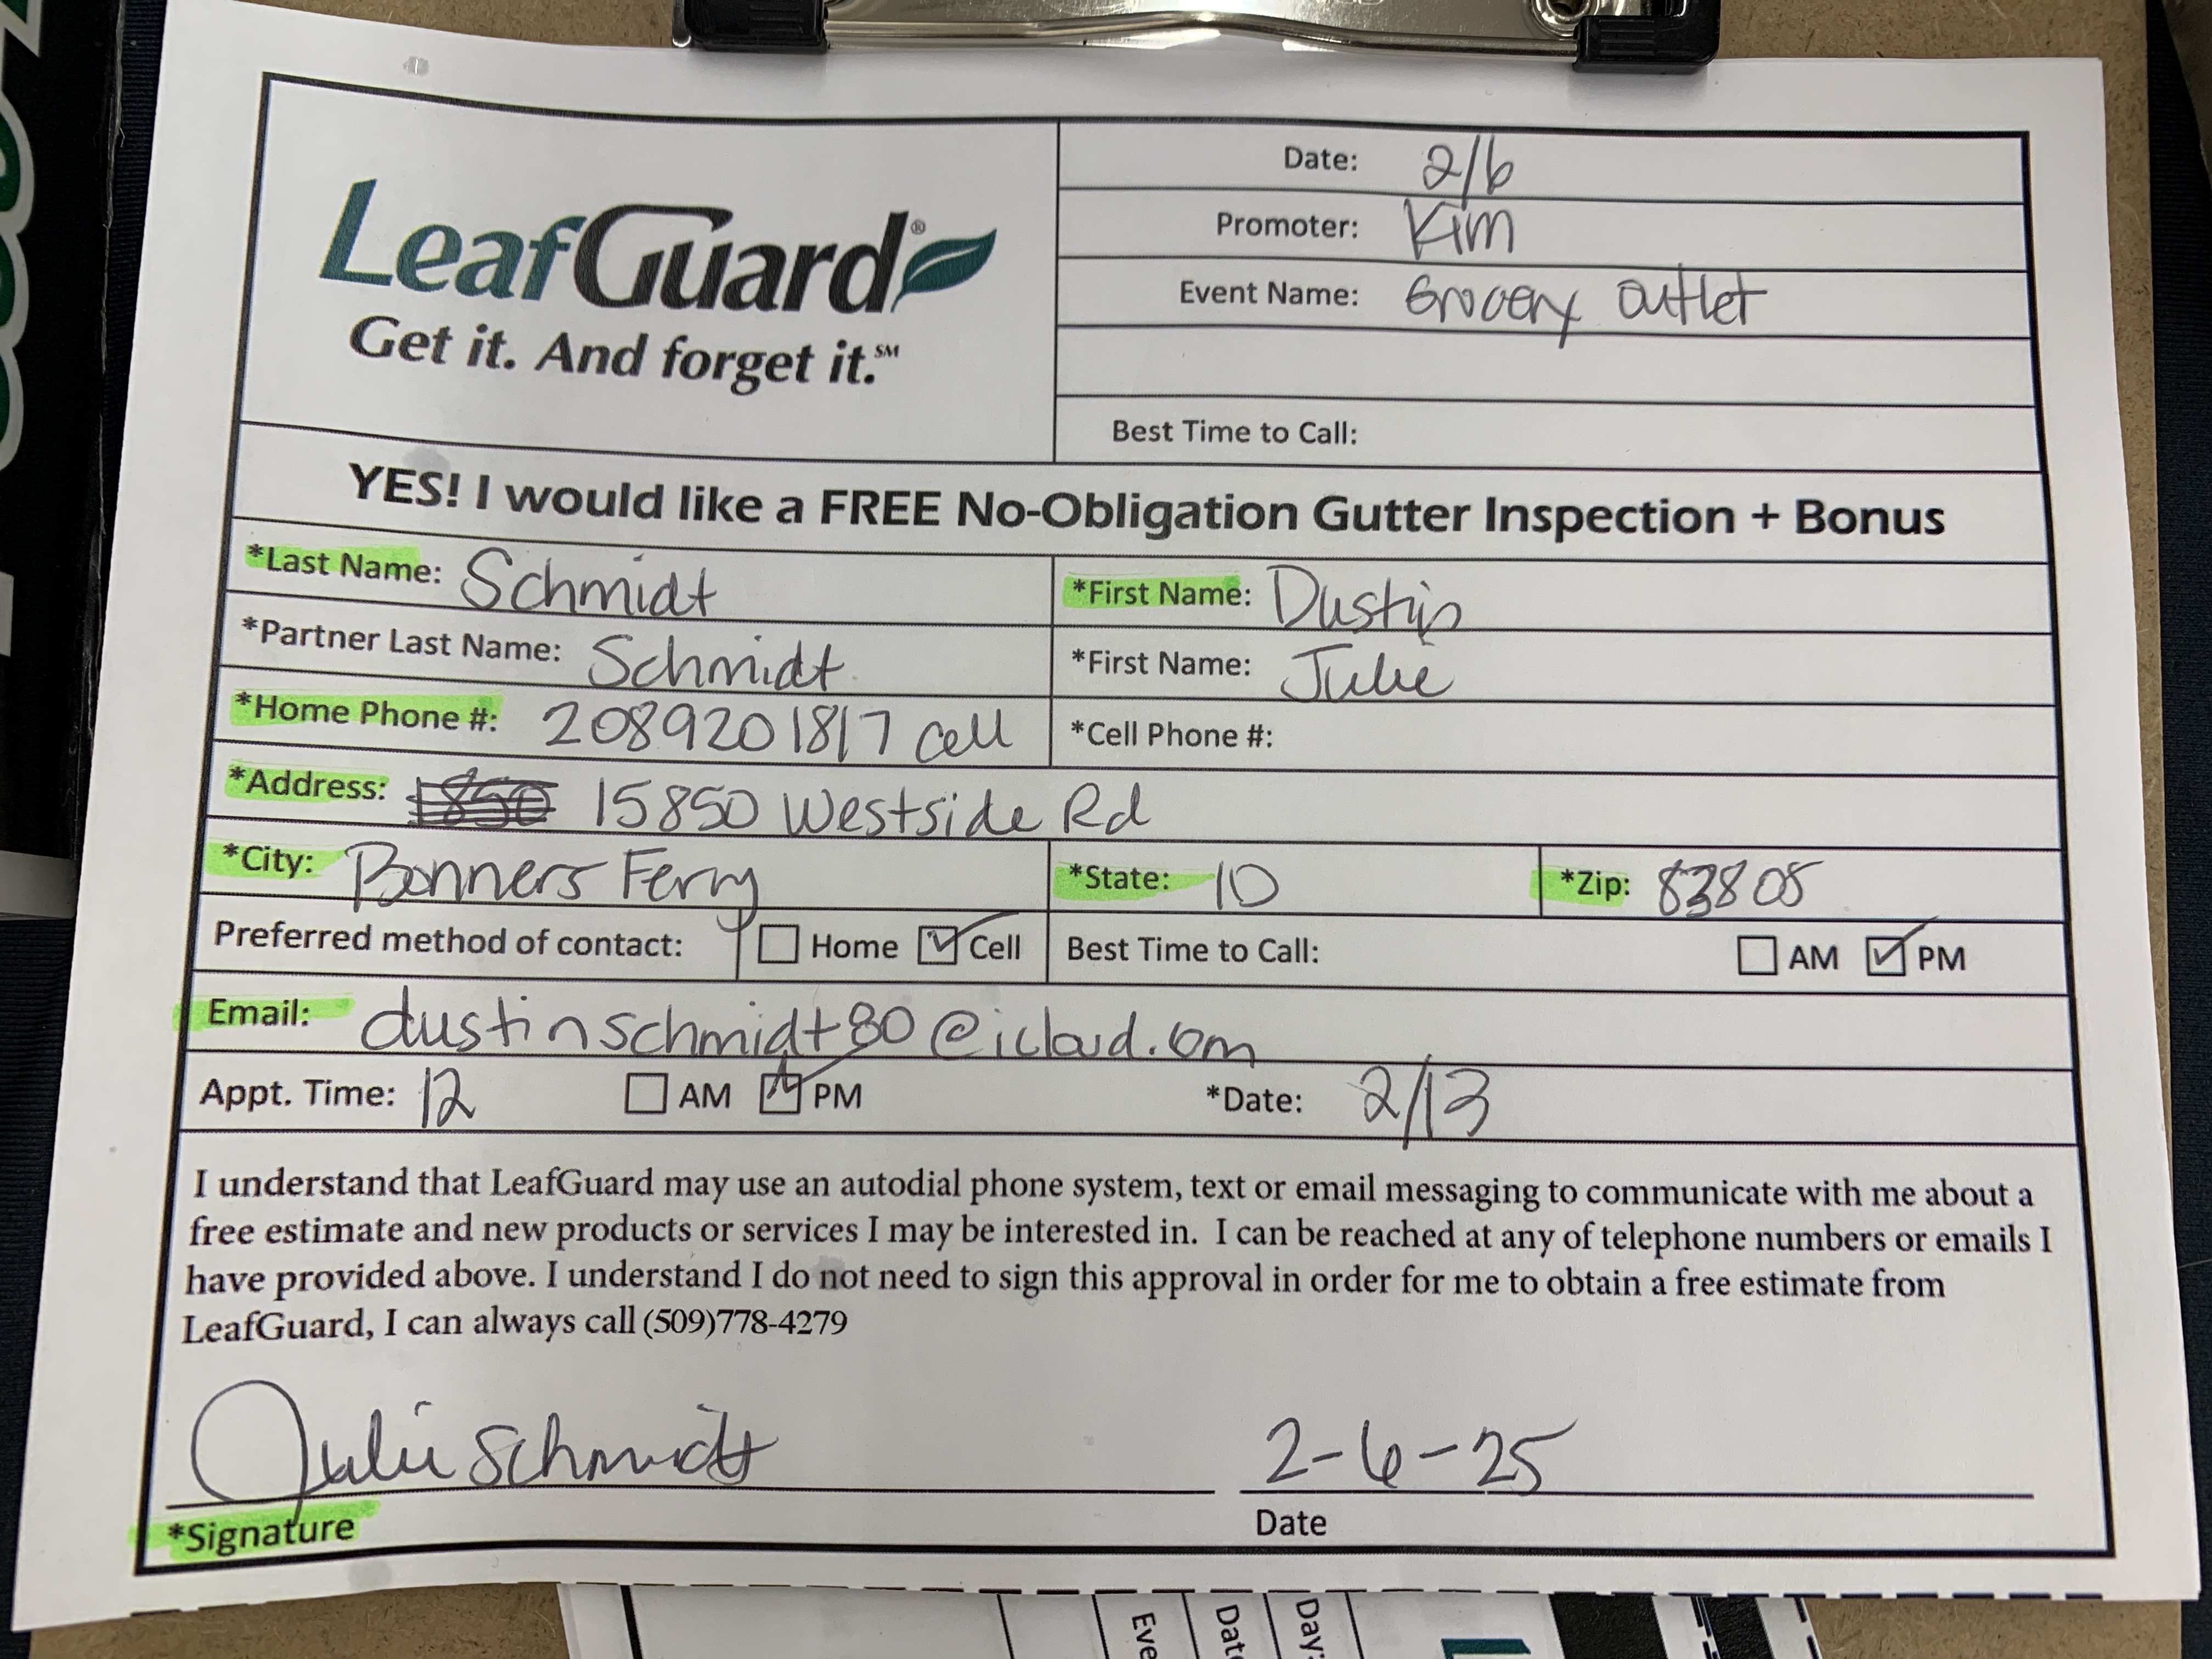 LeafGuard®
Get it. And forget it.℠
Date: 2/6
Promoter: Kim
Event Name: Grocery outlet
Best Time to Call:
YES! I would like a FREE No-Obligation Gutter Inspection + Bonus
*Last Name: Schmidt *First Name: Dustin
*Partner Last Name: Schmidt *First Name: Julie
*Home Phone #: 2089201817 cell *Cell Phone #:
*Address: 15850 Westside Rd
*City: Bonners Ferry *State: ID *Zip: 83805
Preferred method of contact: Home Cell Best Time to Call: AM PM
Email: dustinschmidt80@icloud.com
Appt. Time: 12 AM PM *Date: 2/13
I understand that LeafGuard may use an autodial phone system, text or email messaging to communicate with me about a
free estimate and new products or services I may be interested in. I can be reached at any of telephone numbers or emails I
have provided above. I understand I do not need to sign this approval in order for me to obtain a free estimate from
LeafGuard, I can always call (509)778-4279
Julie Schmidt 2-6-25
*Signature Date